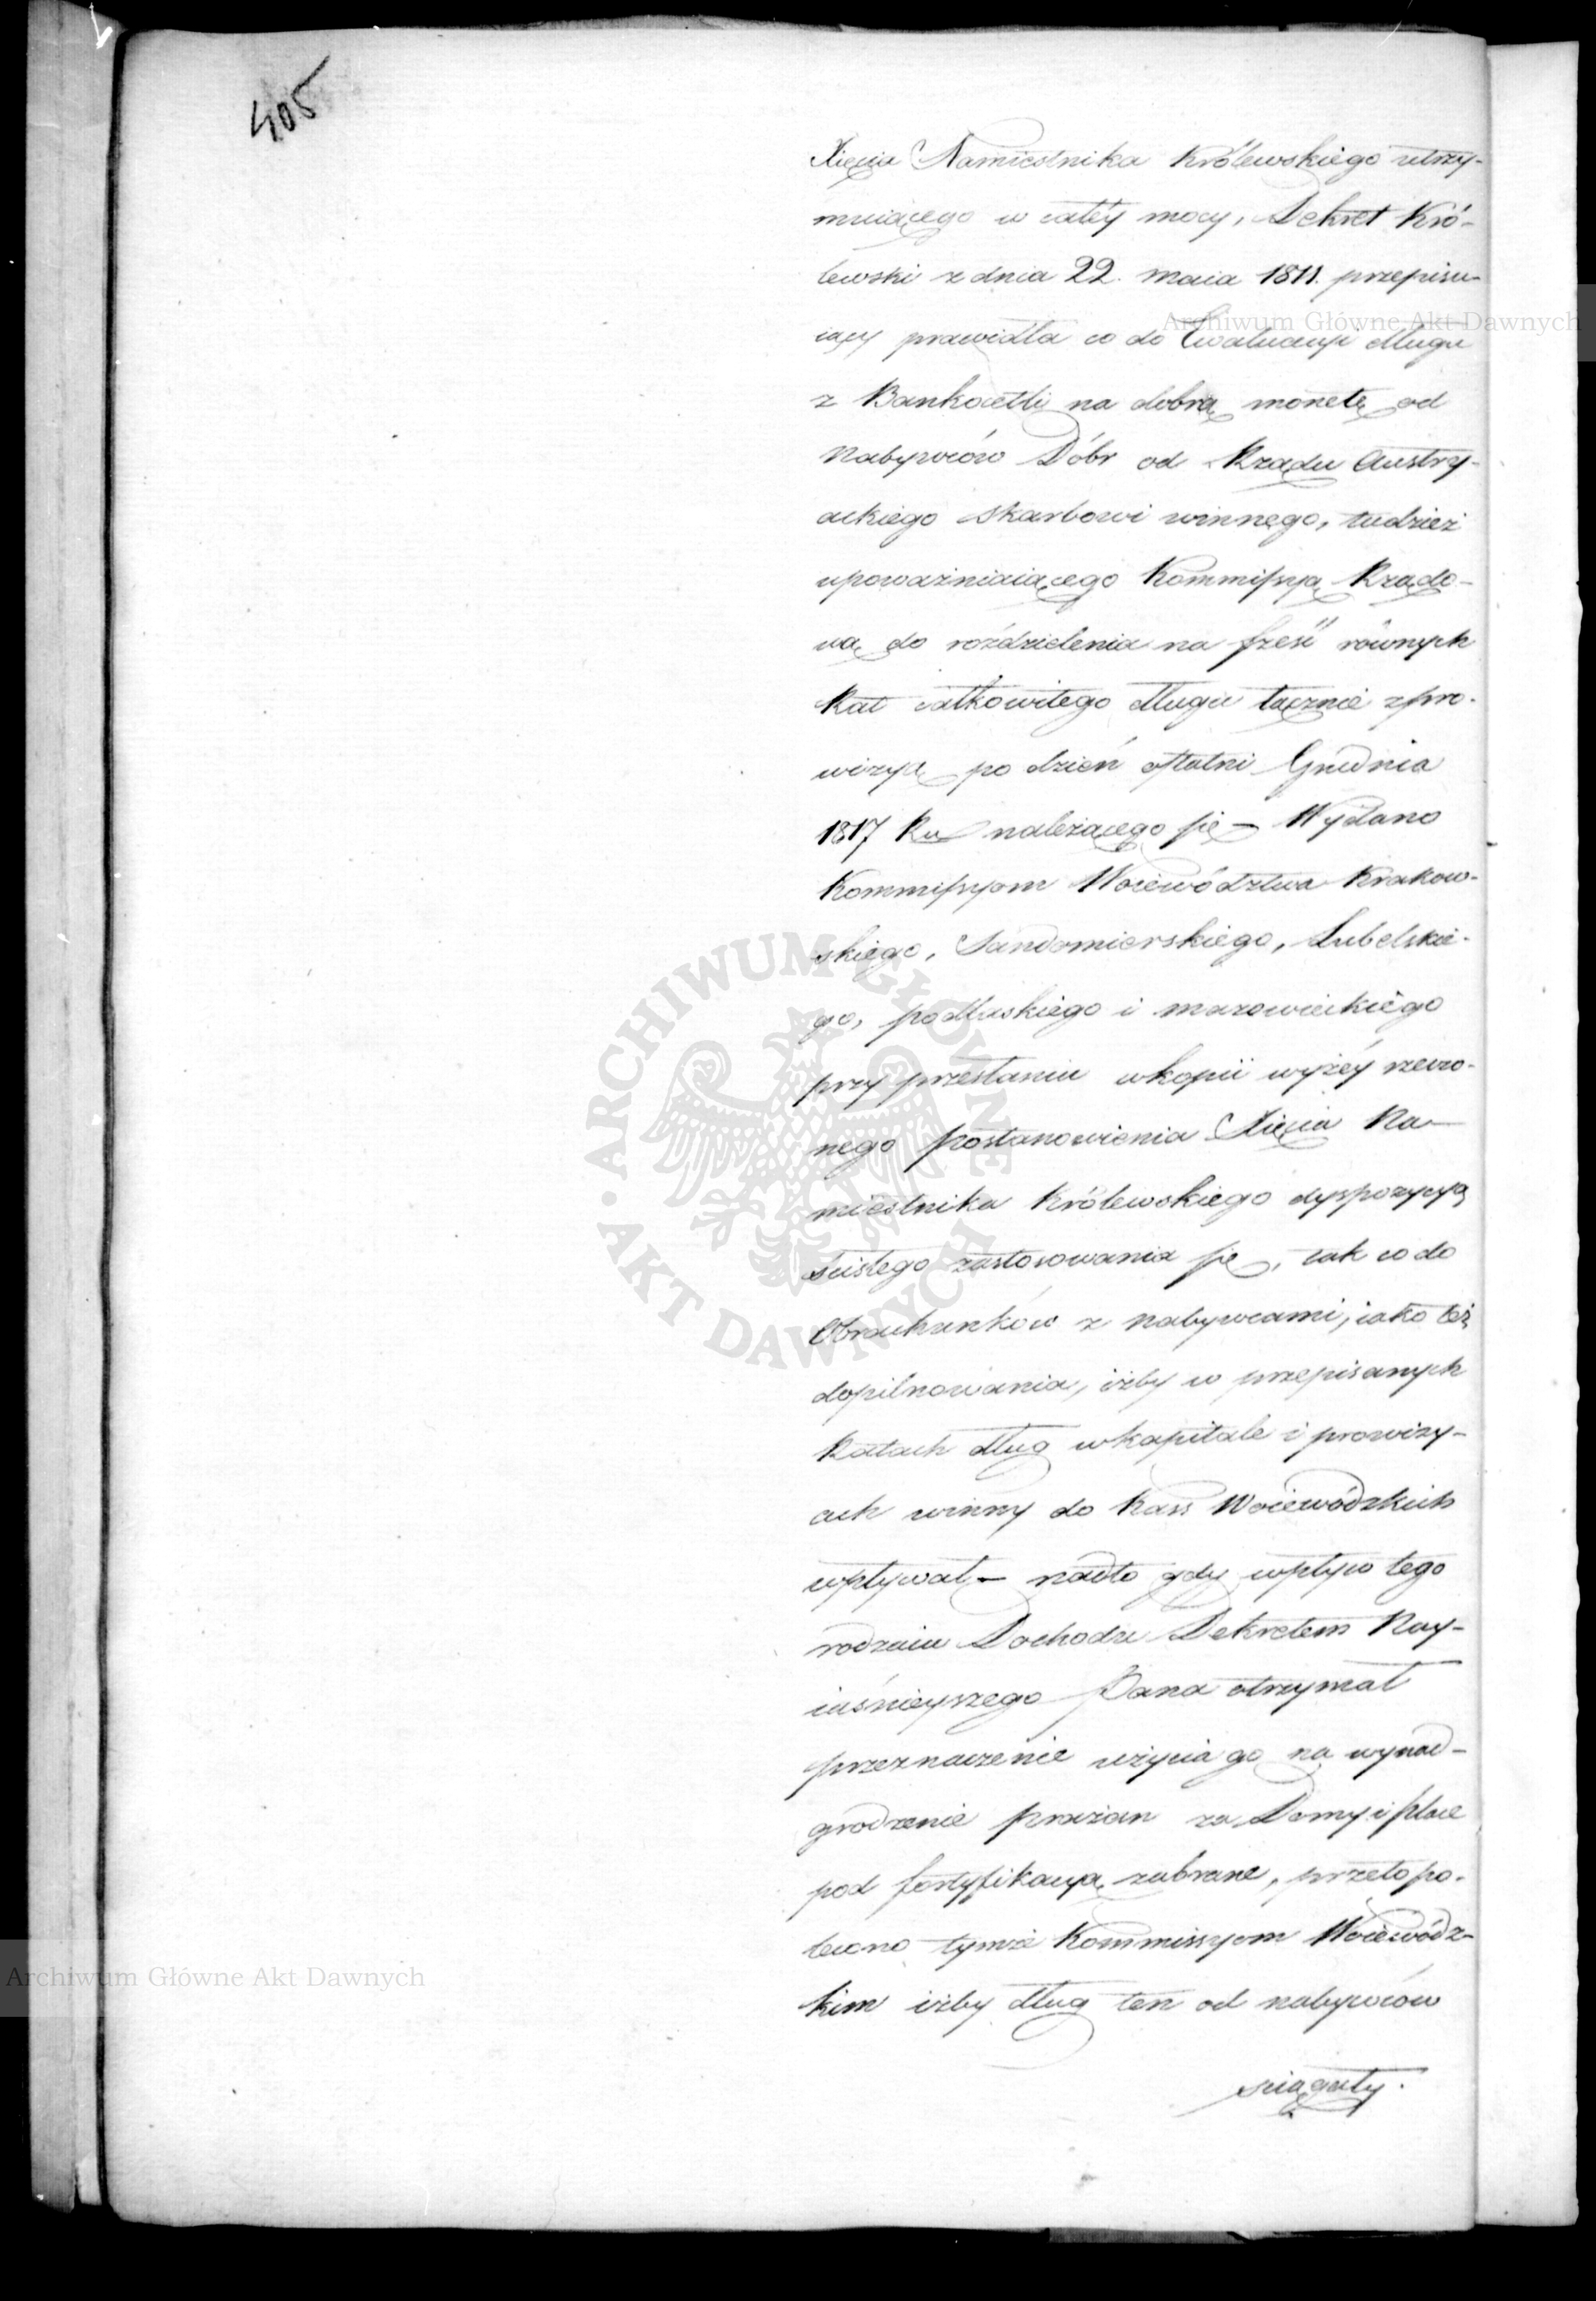 405
Xięcia Namiestnika Królewskiego utrzy-
muiącego w całéy mocy, Dekret Kró-
lewski z dnia 22. maia 1811. przepisu-
iący prawidła co do Ewaluacyi długu
z Bankocetli na dobrą monetę od
Nabywców Dóbr od Rządu Austry-
ackiego skarbowi winnego, tudzież
upoważniaiącego Kommissyą Rządo-
wą do rozdzielenia na sześć równych
Rat całkowitego długu łącznie z pro-
wizyą po dzień ostatni Grudnia
1817 Ru należącego się – Wydano
Kommissyom Woiewództwa Krakow-
skiego, Sandomierskiego, Lubelskie-
go, podlaskiego i mazowieckiego
przy przesłaniu w kopii wyżéy rzeczo-
nego postanowienia Xięcia Na-
miestnika Królewskiego dyspozycyą
ścisłego zastosowania się, tak co do
Obrachunków z nabywcami, iako też
dopilnowania, iżby w przepisanych
Ratach dług w kapitale i prowizy-
ach winny do Kass Woiewódzkich
wpływał – nadto gdy wpływ tego
rodzaiu Dochodu Dekretem Nay-
iaśnieyszego Pana otrzymał
przeznaczenie użycia go na wynad-
grodzenie prażan za Domy i place
pod fortyfikacyą zabrane, przeto po-
lecono tymże Kommissyom Woiewódz-
kim iżby dług ten od nabywców
sciągały.
Archiwum Główne Akt Dawnych
Archiwum Główne Akt Dawnych
ARCHIWUM GŁÓWNE AKT DAWNYCH